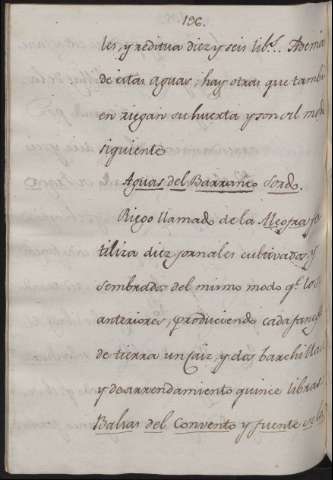 196.
les, y reditua diez y seis lib.s. Adema
de estas Aguas, hay otras que tambi
en riegan su huerta y son del mo
siguiente
Aguas del Barranco Sordo.
Riego llamado de la Negra fe
tiliza diez jornales cultivados y
sembrados del mismo modo q.e los
anteriores, produciendo cada fan
de tierra un Caiz, y dos barchillas
y de arrendamiento quince libras
Balsas del Convento y fuente